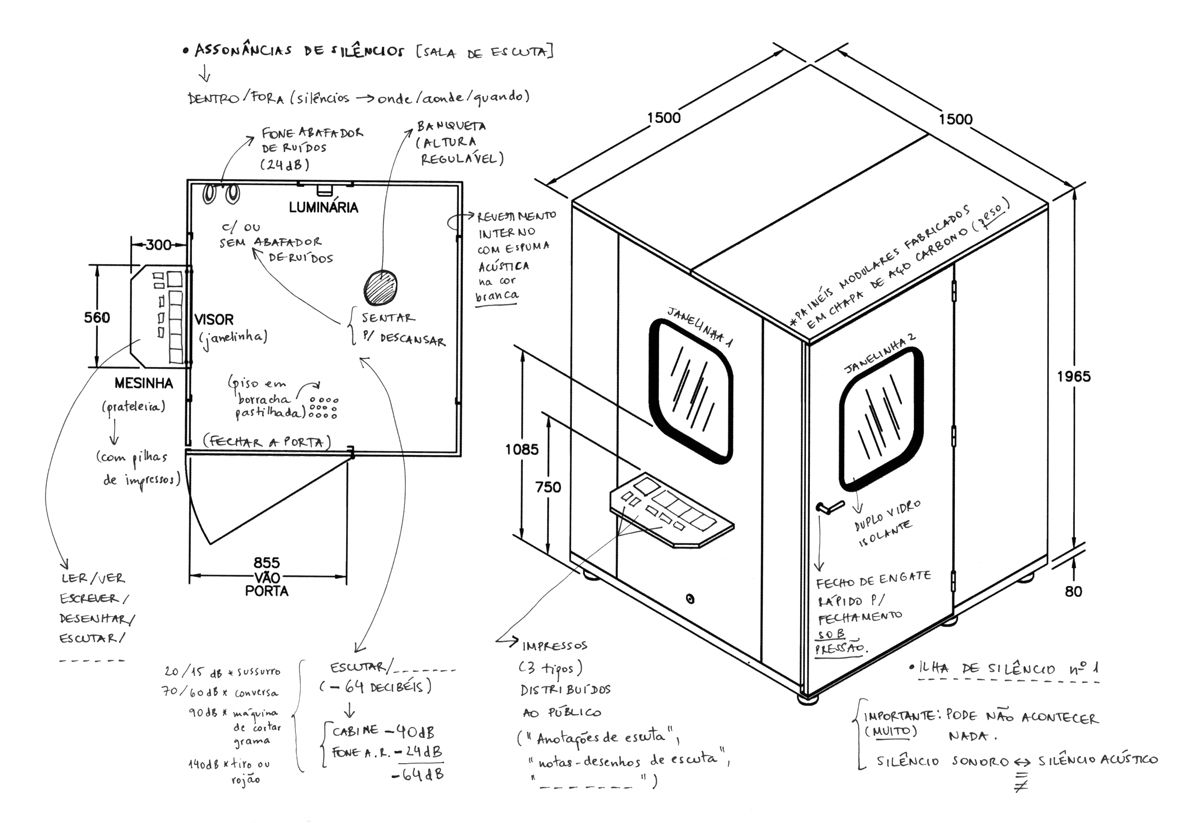 • ASSONÂNCIAS DE SILÊNCIOS [SALA DE ESCUTA]
DENTRO/FORA (silêncios → onde/aonde/quando)
FONE ABAFADOR
DE RUÍDOS
(24dB)
BANQUETA
(ALTURA
REGULÁVEL)
LUMINÁRIA
C/ OU
SEM ABAFADOR
DE RUÍDOS
REVESTIMENTO
INTERNO
COM ESPUMA
ACÚSTICA
na cor
branca
300
560
VISOR
(janelinha)
SENTAR
P/ DESCANSAR
MESINHA
(prateleira)
(com pilhas
de impressos)
(piso em
borracha
pastilhada)
(FECHAR A PORTA)
855
VÃO
PORTA
LER/VER
ESCREVER/
DESENHAR/
ESCUTAR/
_ _ _ _ _ _
20/15 dB * sussurro
70/60dB * conversa
90dB * máquina
de cortar
grama
140dB * tiro ou
rojão
ESCUTAR/_ _ _ _ _ _
(-64 DECIBÉIS)
CABINE -40dB
FONE A.R. -24dB
-64dB
1500
1500
*PAINÉIS MODULARES FABRICADOS
EM CHAPA DE AÇO CARBONO (peso)
JANELINHA 1
JANELINHA 2
1965
1085
750
80
DUPLO VIDRO
ISOLANTE
FECHO DE ENGATE
RÁPIDO P/
FECHAMENTO
SOB
PRESSÃO.
IMPRESSOS
(3 tipos)
DISTRIBUÍDOS
AO PÚBLICO
("Anotações de escuta",
"notas-desenhos de escuta",
"_ _ _ _ _ _ _")
• ILHA DE SILÊNCIO nº 1
IMPORTANTE: PODE NÃO ACONTECER
(MUITO) NADA.
SILÊNCIO SONORO ↔ SILÊNCIO ACÚSTICO
≡
≠